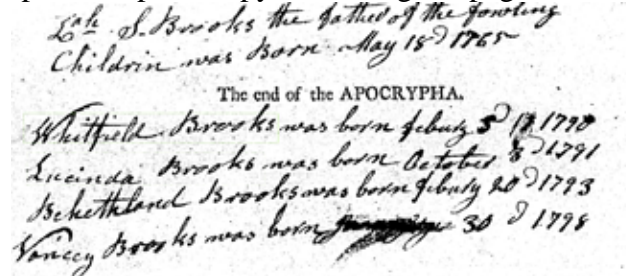 Zah S. Brooks the father of the fowling
Childrin was Born May 18d 1765
The end of the APOCRYPHA.
Whitfield Brooks was born febury 1790
Lucinda Brooks was born October 8d 1791
Behethland Brooks was born febury 20d 1793
Vancey Brooks was born 30d 1798